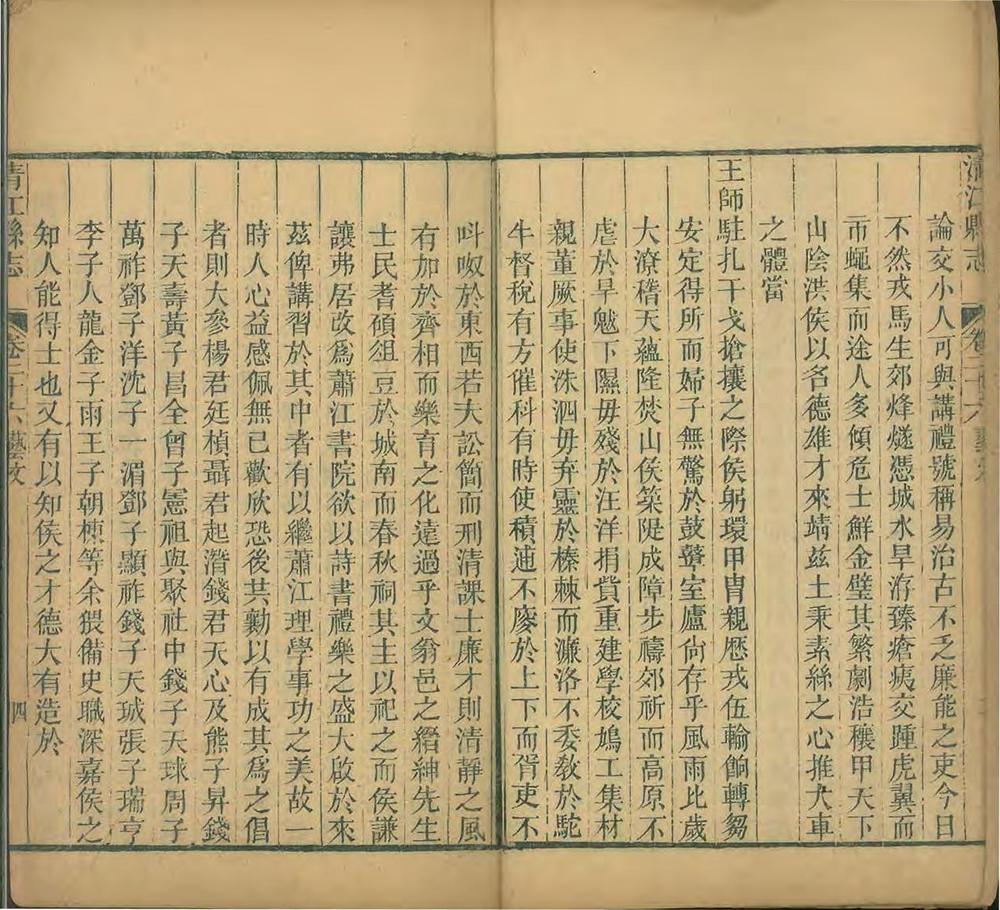 清江縣志 卷二十六 藝文
論交小人可與講禮號稱易治古不乏廉能之吏今日
不然戎馬生郊烽燧憑城水旱洊臻瘡痍交踵虎翼而
市蠅集而途人多傾危士鮮金璧其繁劇浩穰甲天下
山陰洪侯以名德雄才來靖茲土秉素絲之心推大車
之體當
王師駐扎干戈搶攘之際侯躬環甲冑親歷戎伍輸餉轉芻
安定得所而婦子無驚於鼓鼙室廬尙存乎風雨比歲
大潦稽天蘊隆焚山侯築隄成障步禱郊祈而高原不
虐於旱魃下隰毋殘於汪洋捐貲重建學校鳩工集材
親董厥事使洙泗毋弃靈於榛棘而濂洛不委敎於駝
牛督稅有方催科有時使積逋不廢於上下而胥吏不
呌呶於東西若夫訟簡而刑清課士廉才則清靜之風
有加於齊相而樂育之化遠過乎文翁邑之縉紳先生
士民耆碩俎豆於城南而春秋祠其主以祀之而侯謙
讓弗居改爲蕭江書院欲以詩書禮樂之盛大啟於來
茲俾講習於其中者有以繼蕭江理學事功之美故一
時人心益感佩無已歡欣恐後共勷以有成其爲之倡
者則大參楊君廷楨聶君起潛錢君天心及熊子昇錢
子天壽黃子昌全曾子憲祖與聚社中錢子天球周子
萬祚鄧子洋沈子一湄鄧子顯祚錢子天珹張子瑞亨
李子人龍金子雨王子朝棟等余猥備史職深嘉侯之
知人能得士也又有以知侯之才德大有造於
清江縣志 卷二十六 藝文 四